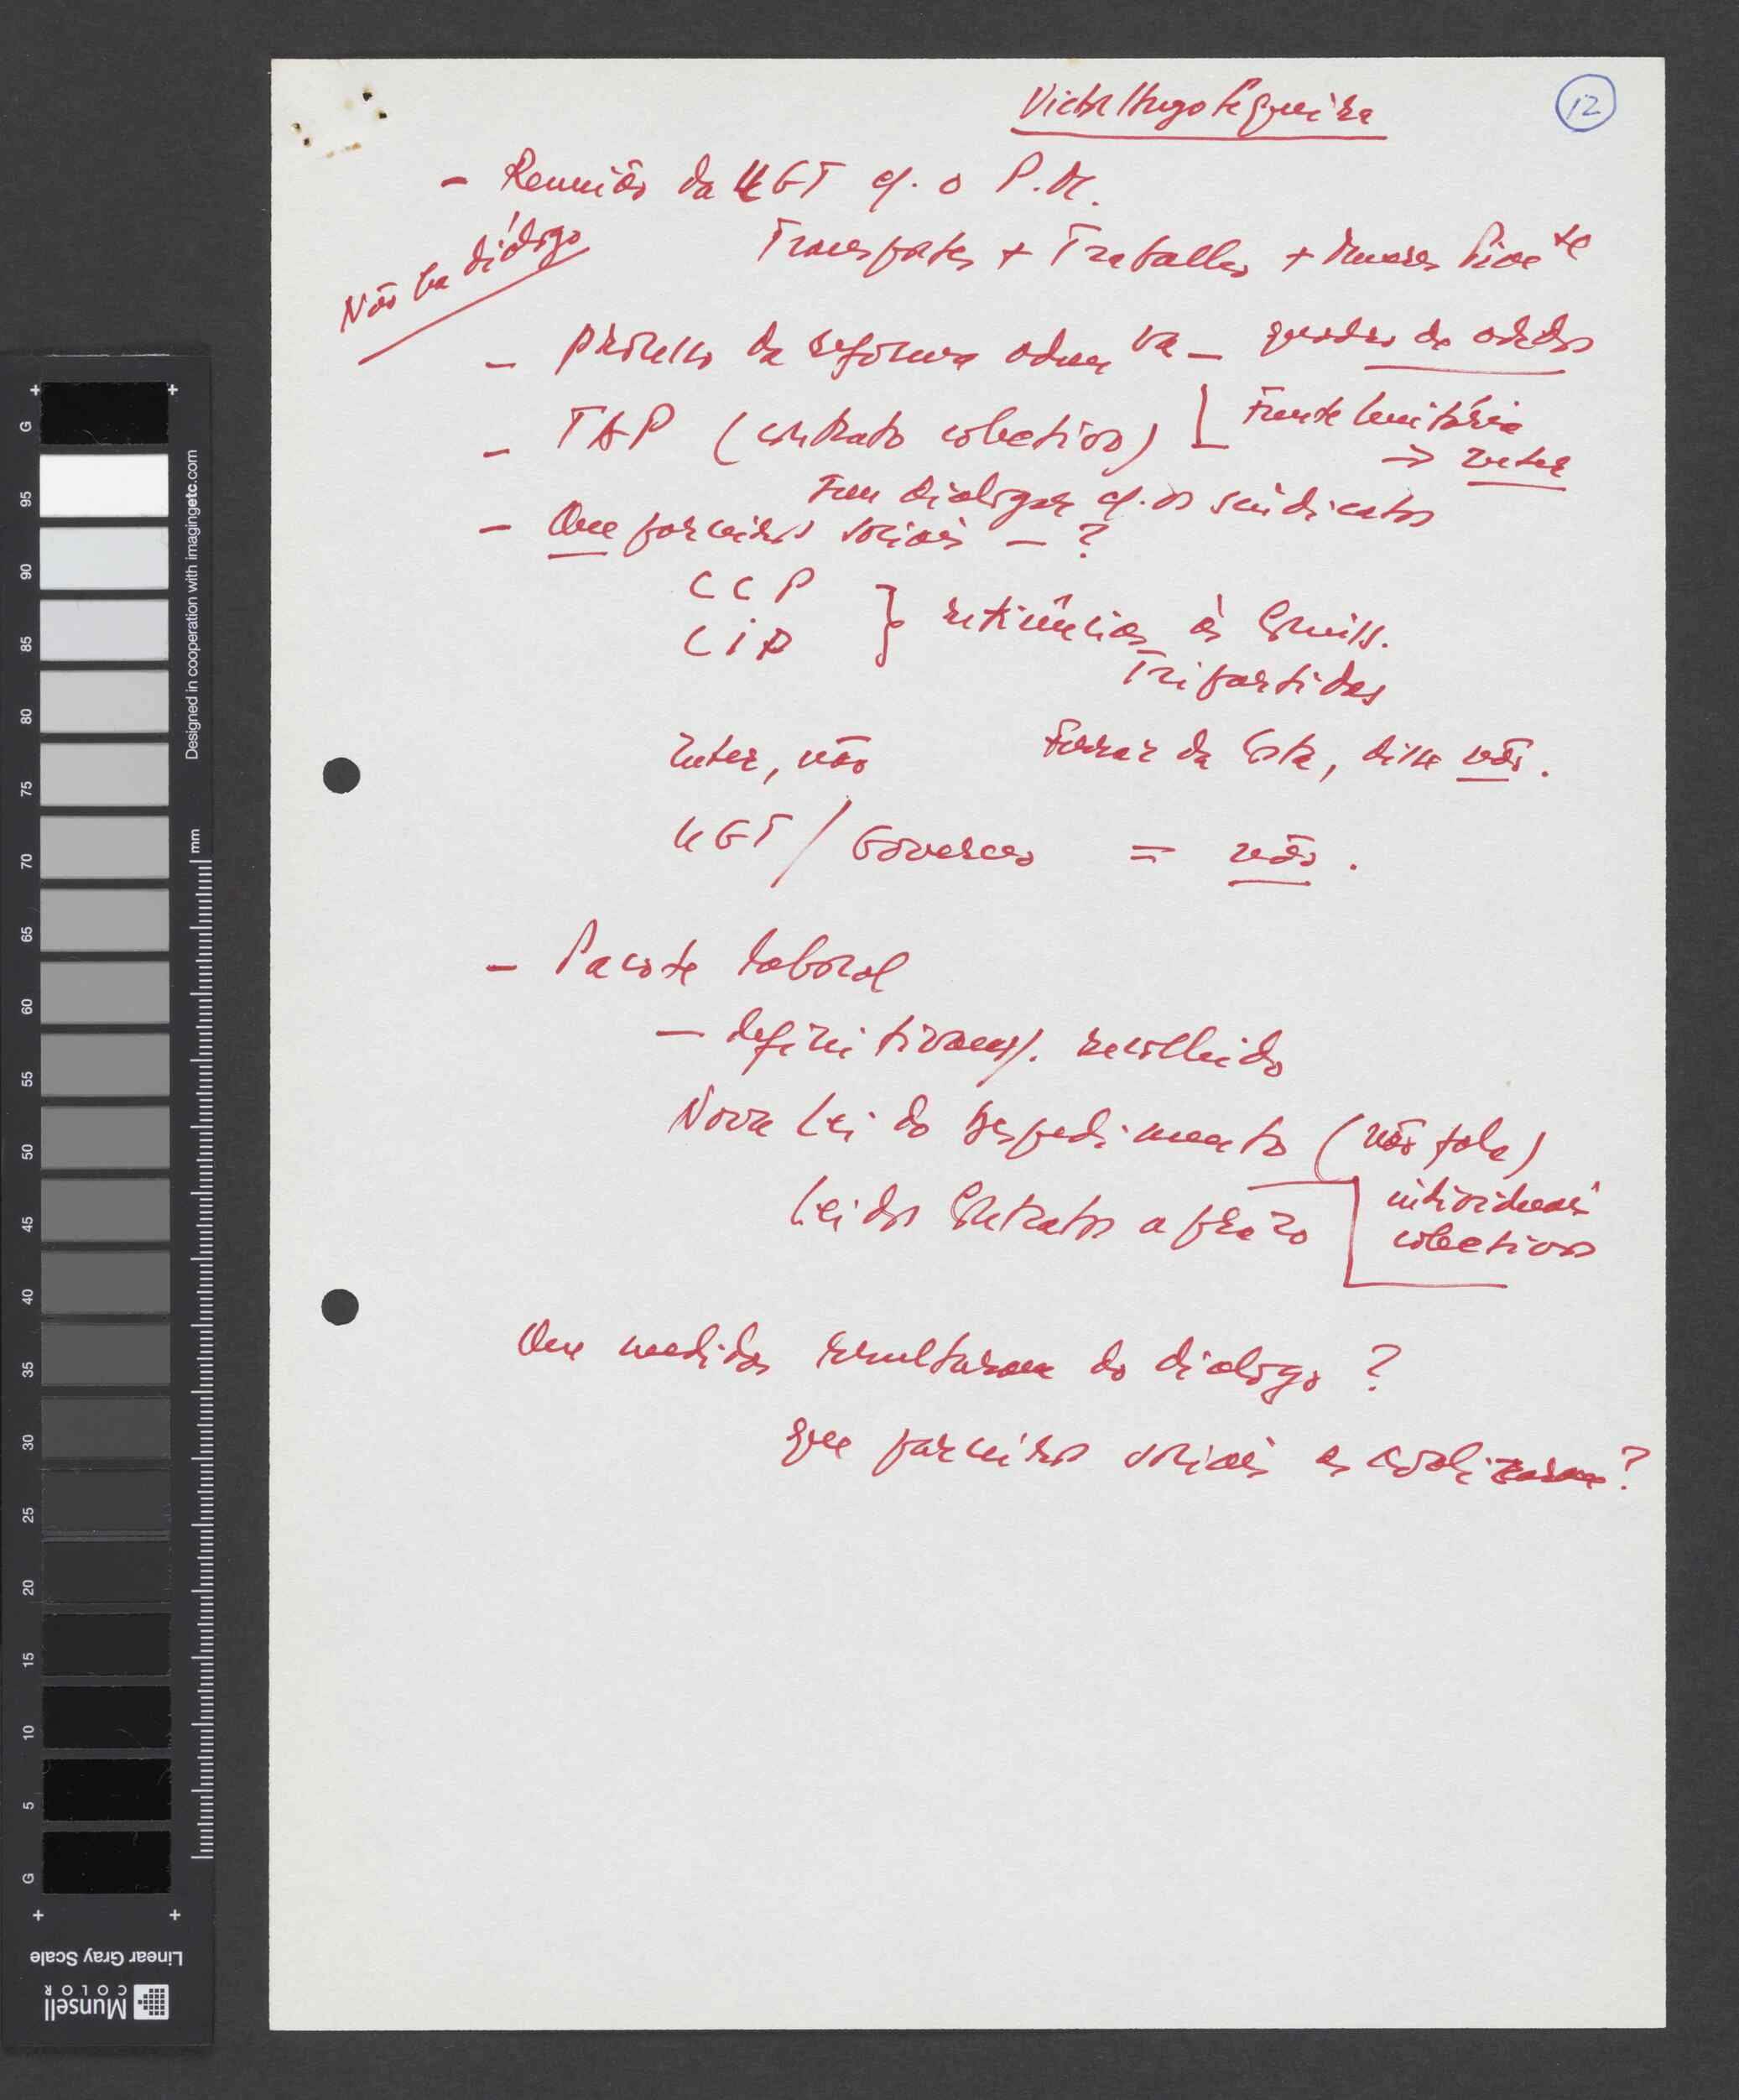 Victor Hugo Sequeira
12
- Reunião da UGT c/. o P.M.
Não há diálogo
Transportes + Trabalho + Amaro
- processo da reforma adm va - quadro de adidos
- TAP (contrato colectivo) [ Frente Unitária
→ Inter
Fun dialogar c/. os sindicatos
- Que parceiros sociais - ?
CCP
CIP
} reticências às Comiss.
Tripartidas
Inter, não
Ferraz da Costa, disse não.
UGT / Governo = não.
- Pacote laboral
- definitivam/. recolhido
Nova Lei do despedimento (não fala)
Lei dos Contratos a prazo
individuais
colectivos
Que medidas resultaram do dialogo?
que parceiros sociais as